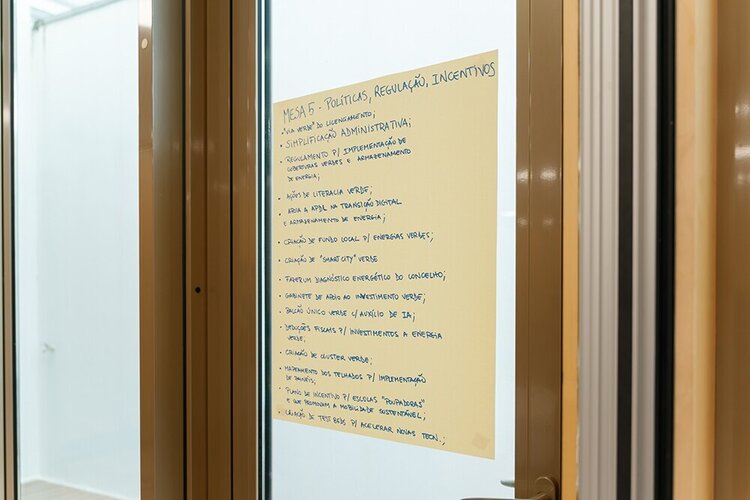 MESA 5 - POLÍTICAS, REGULAÇÃO, INCENTIVOS
• "VIA VERDE" DO LICENCIAMENTO;
• SIMPLIFICAÇÃO ADMINISTRATIVA;
• REGULAMENTO P/ IMPLEMENTAÇÃO DE
COBERTURAS VERDES E ARMAZENAMENTO
DE ENERGIA;
• AÇÕES DE LITERACIA VERDE;
• APOIA A APDL NA TRANSIÇÃO DIGITAL
E ARMAZENAMENTO DE ENERGIA;
• CRIAÇÃO DE FUNDO LOCAL P/ ENERGIAS VERDES;
• CRIAÇÃO DE "SMART CITY" VERDE
• FAZER UM DIAGNÓSTICO ENERGÉTICO DO CONCELHO;
• GABINETE DE APOIO AO INVESTIMENTO VERDE;
• BALCÃO ÚNICO VERDE C/ AUXÍLIO DE IA;
• DEDUÇÕES FISCAIS P/ INVESTIMENTOS A ENERGIA
VERDE;
• CRIAÇÃO DE CLUSTER VERDE;
• MAPEAMENTO DOS TELHADOS P/ IMPLEMENTAÇÃO
DE PAINÉIS;
• PLANO DE INCENTIVO P/ ESCOLAS "POUPADORAS"
E QUE PROMOVAM A MOBILIDADE SUSTENTÁVEL;
• CRIAÇÃO DE TEST BEDS P/ ACELERAR NOVAS TECN.;